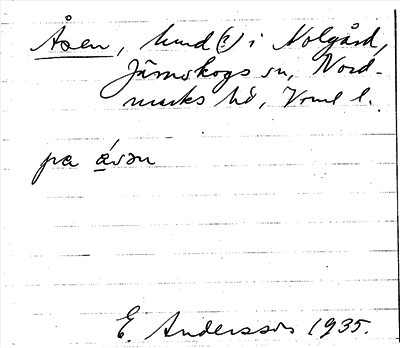 Åsen, hmd(?) i Nolgård,
Järnskogs sn, Nord-
marks hd, Vrml l.
pa åsən
E. Andersson 1935.